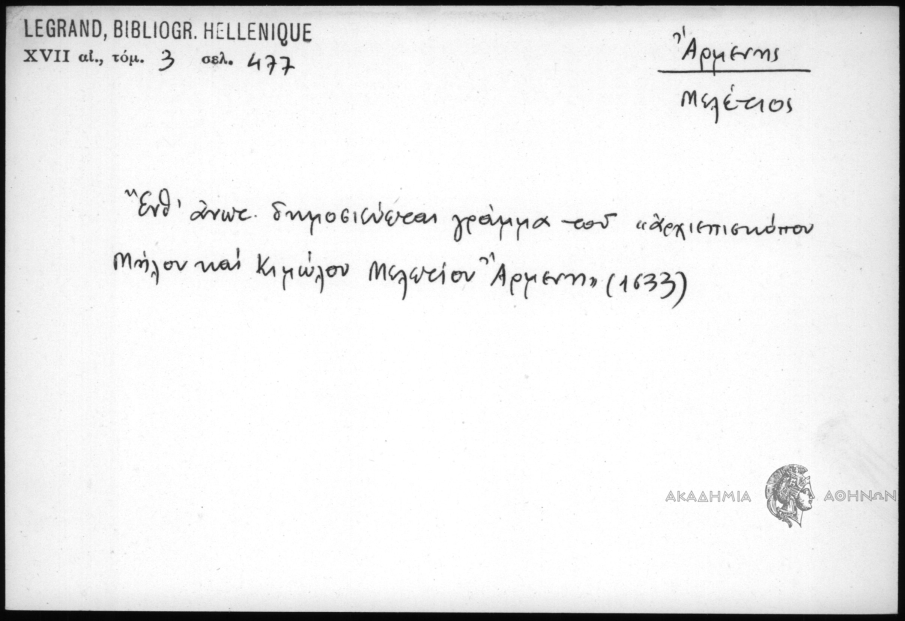 LEGRAND, BIBLIOGR. HELLENIQUE
XVII αἰ., τόμ. 3 σελ. 477
Ἄρμενης
Μελέτιος
Ἔνθ' ἀνωτ. δημοσιεύεται γράμμα τοῦ «ἀρχιεπισκόπου
Μήλου καὶ Κιμώλου Μελετίου Ἄρμενη» (1633)
ΑΚΑΔΗΜΙΑ ΑΘΗΝΩΝ